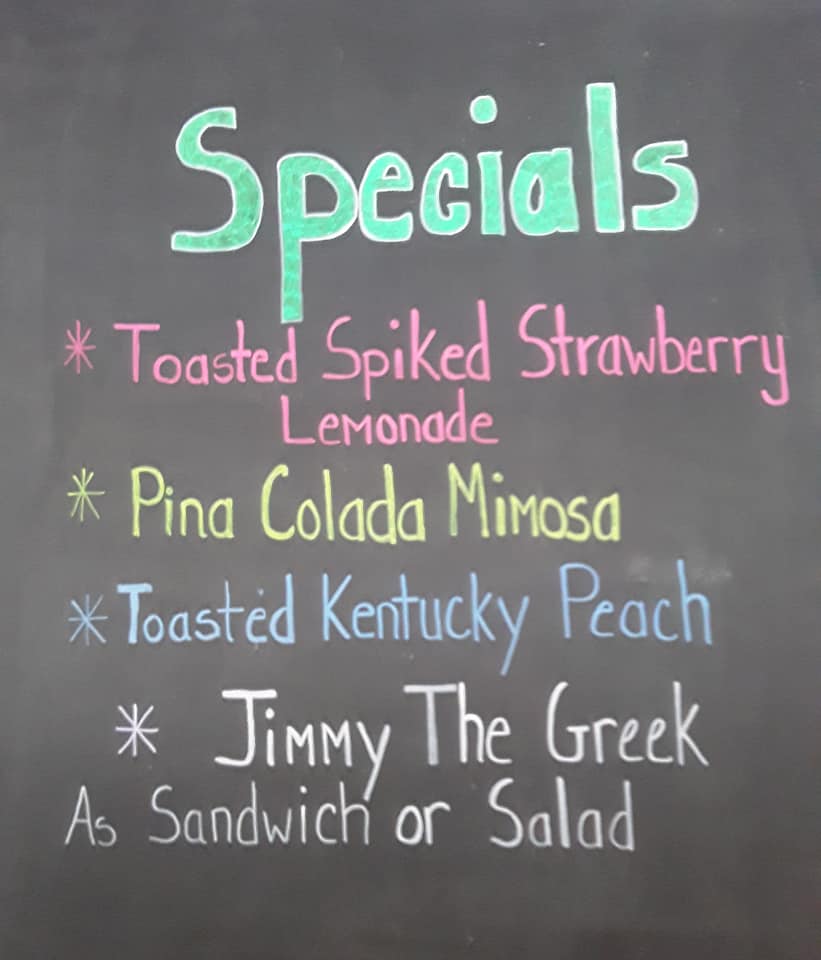 Specials
* Toasted Spiked Strawberry
Lemonade
* Pina Colada Mimosa
* Toasted Kentucky Peach
* Jimmy The Greek
As Sandwich or Salad